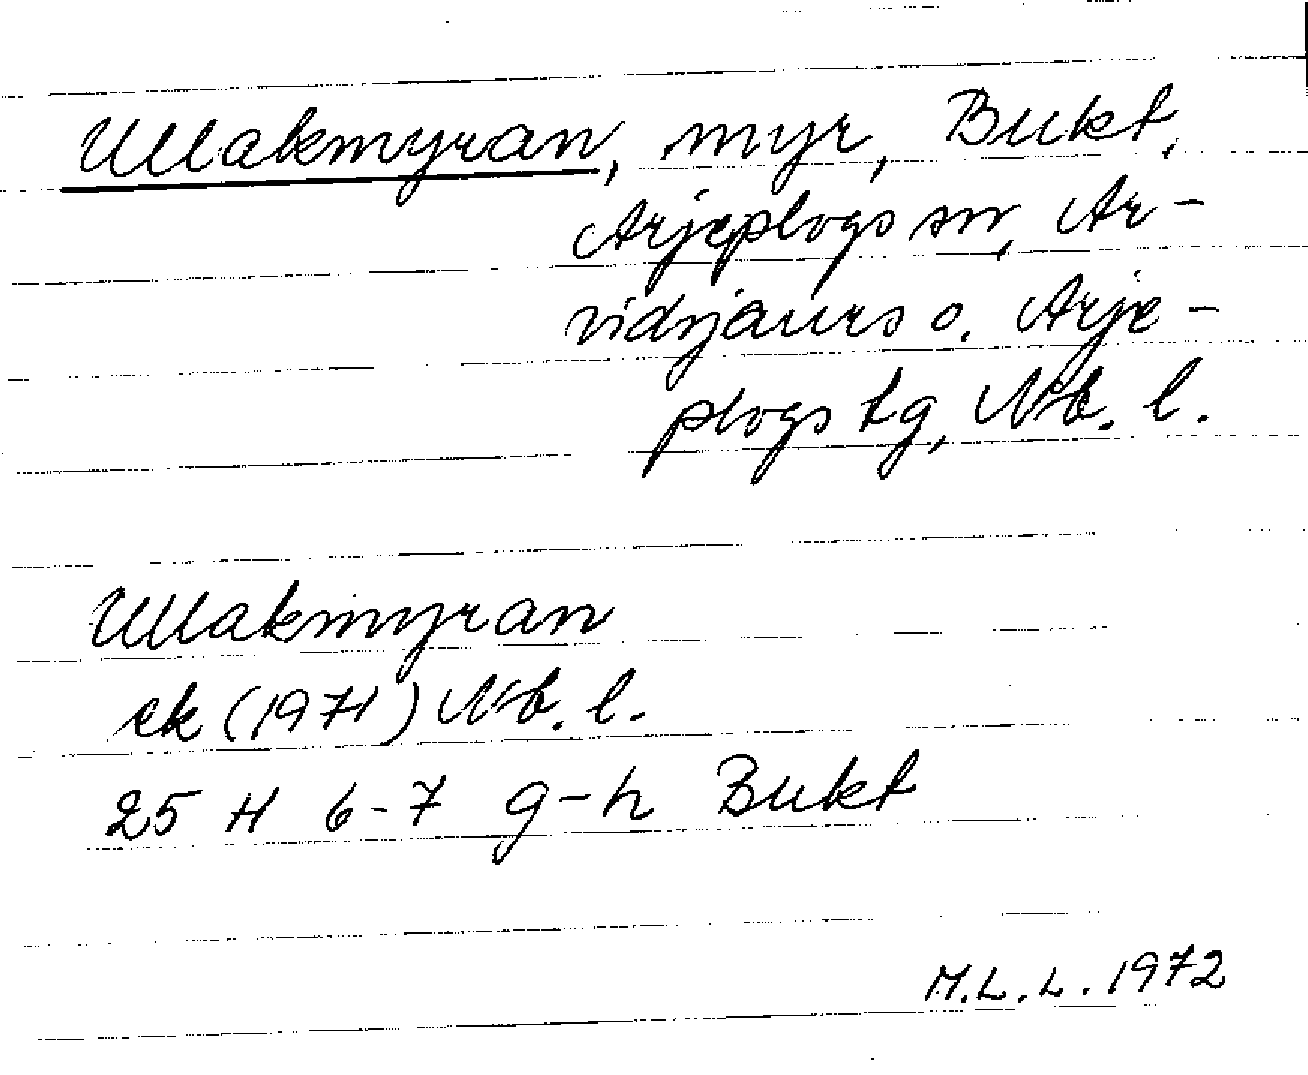 Ullakmyran, myr, Bukt,
Arjeplogs sn, Ar-
vidsjaurs o. Arje-
plogs tg, Nb. l.
Ullakmyran
ek (1971) Nb. l.
25 H 6-7 g-h Bukt
M.L.L. 1972